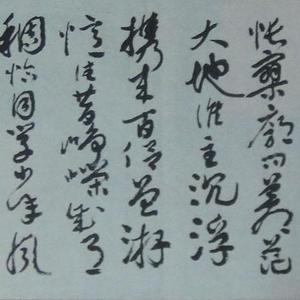 怅寥廓问苍茫
大地谁主沉浮
携来百侣曾游
忆往昔峥嵘岁月
稠恰同学少年风